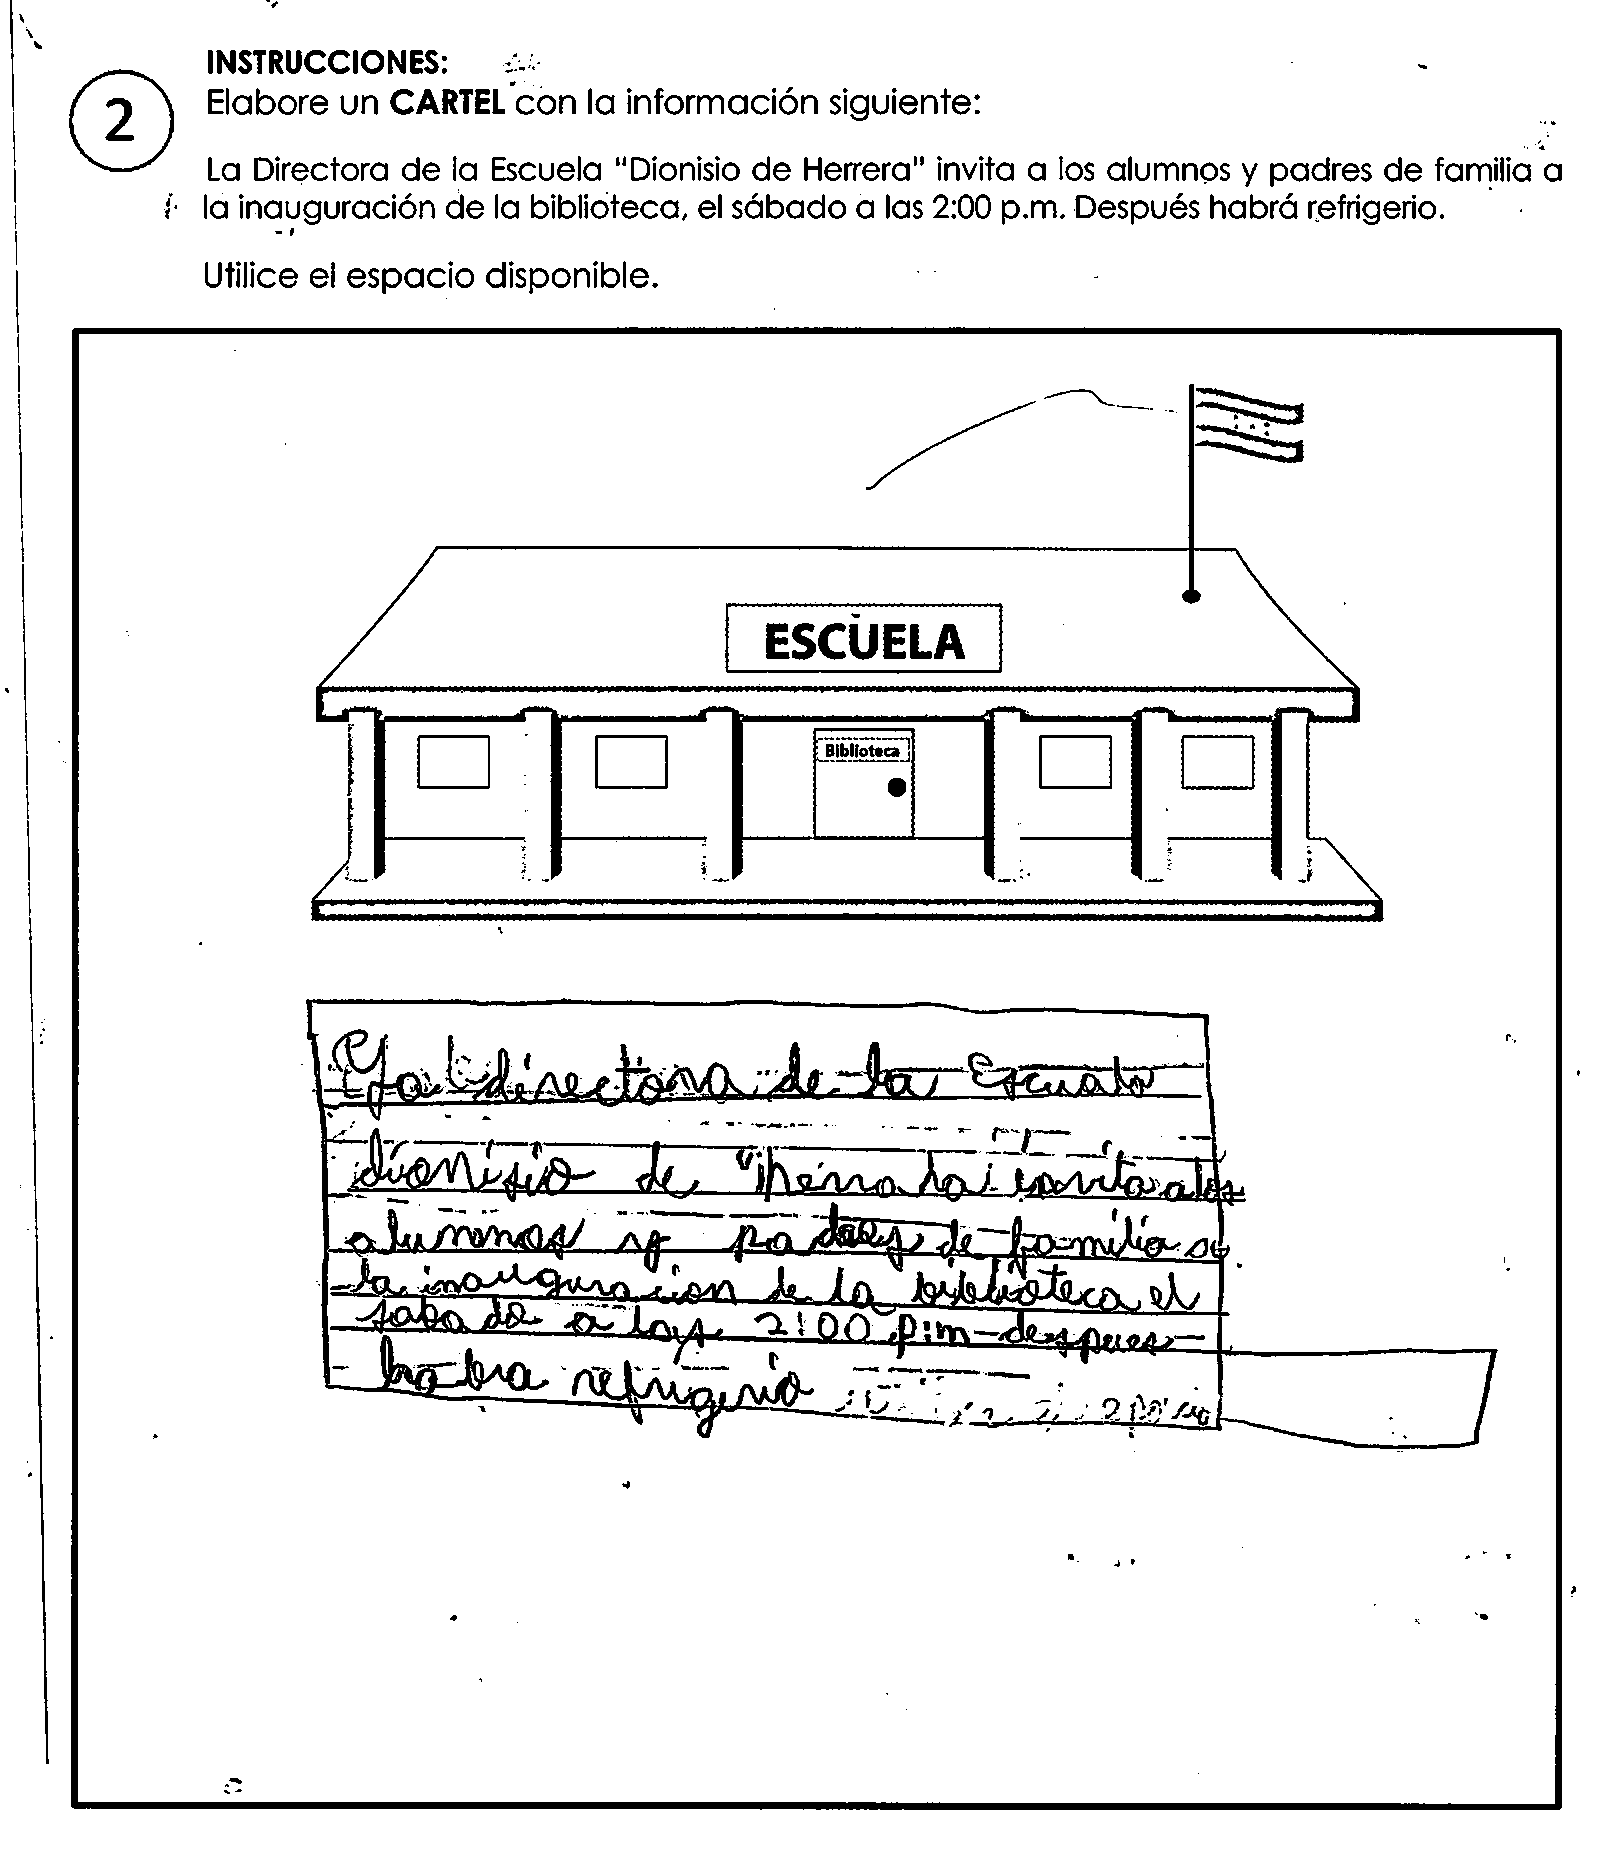 INSTRUCCIONES:
2
Elabore un CARTEL con la información siguiente:
La Directora de la Escuela "Dionisio de Herrera" invita a los alumnos y padres de familia a
la inauguración de la biblioteca, el sábado a las 2:00 p.m. Después habrá refrigerio.
Utilice el espacio disponible.
ESCUELA
Biblioteca
directora de la Escuala
dionisio de invita a los
alumnos y de familia
la inauguracion de la biblioteca el
sabado a los 2:00 p:m despues
habra refrigerio